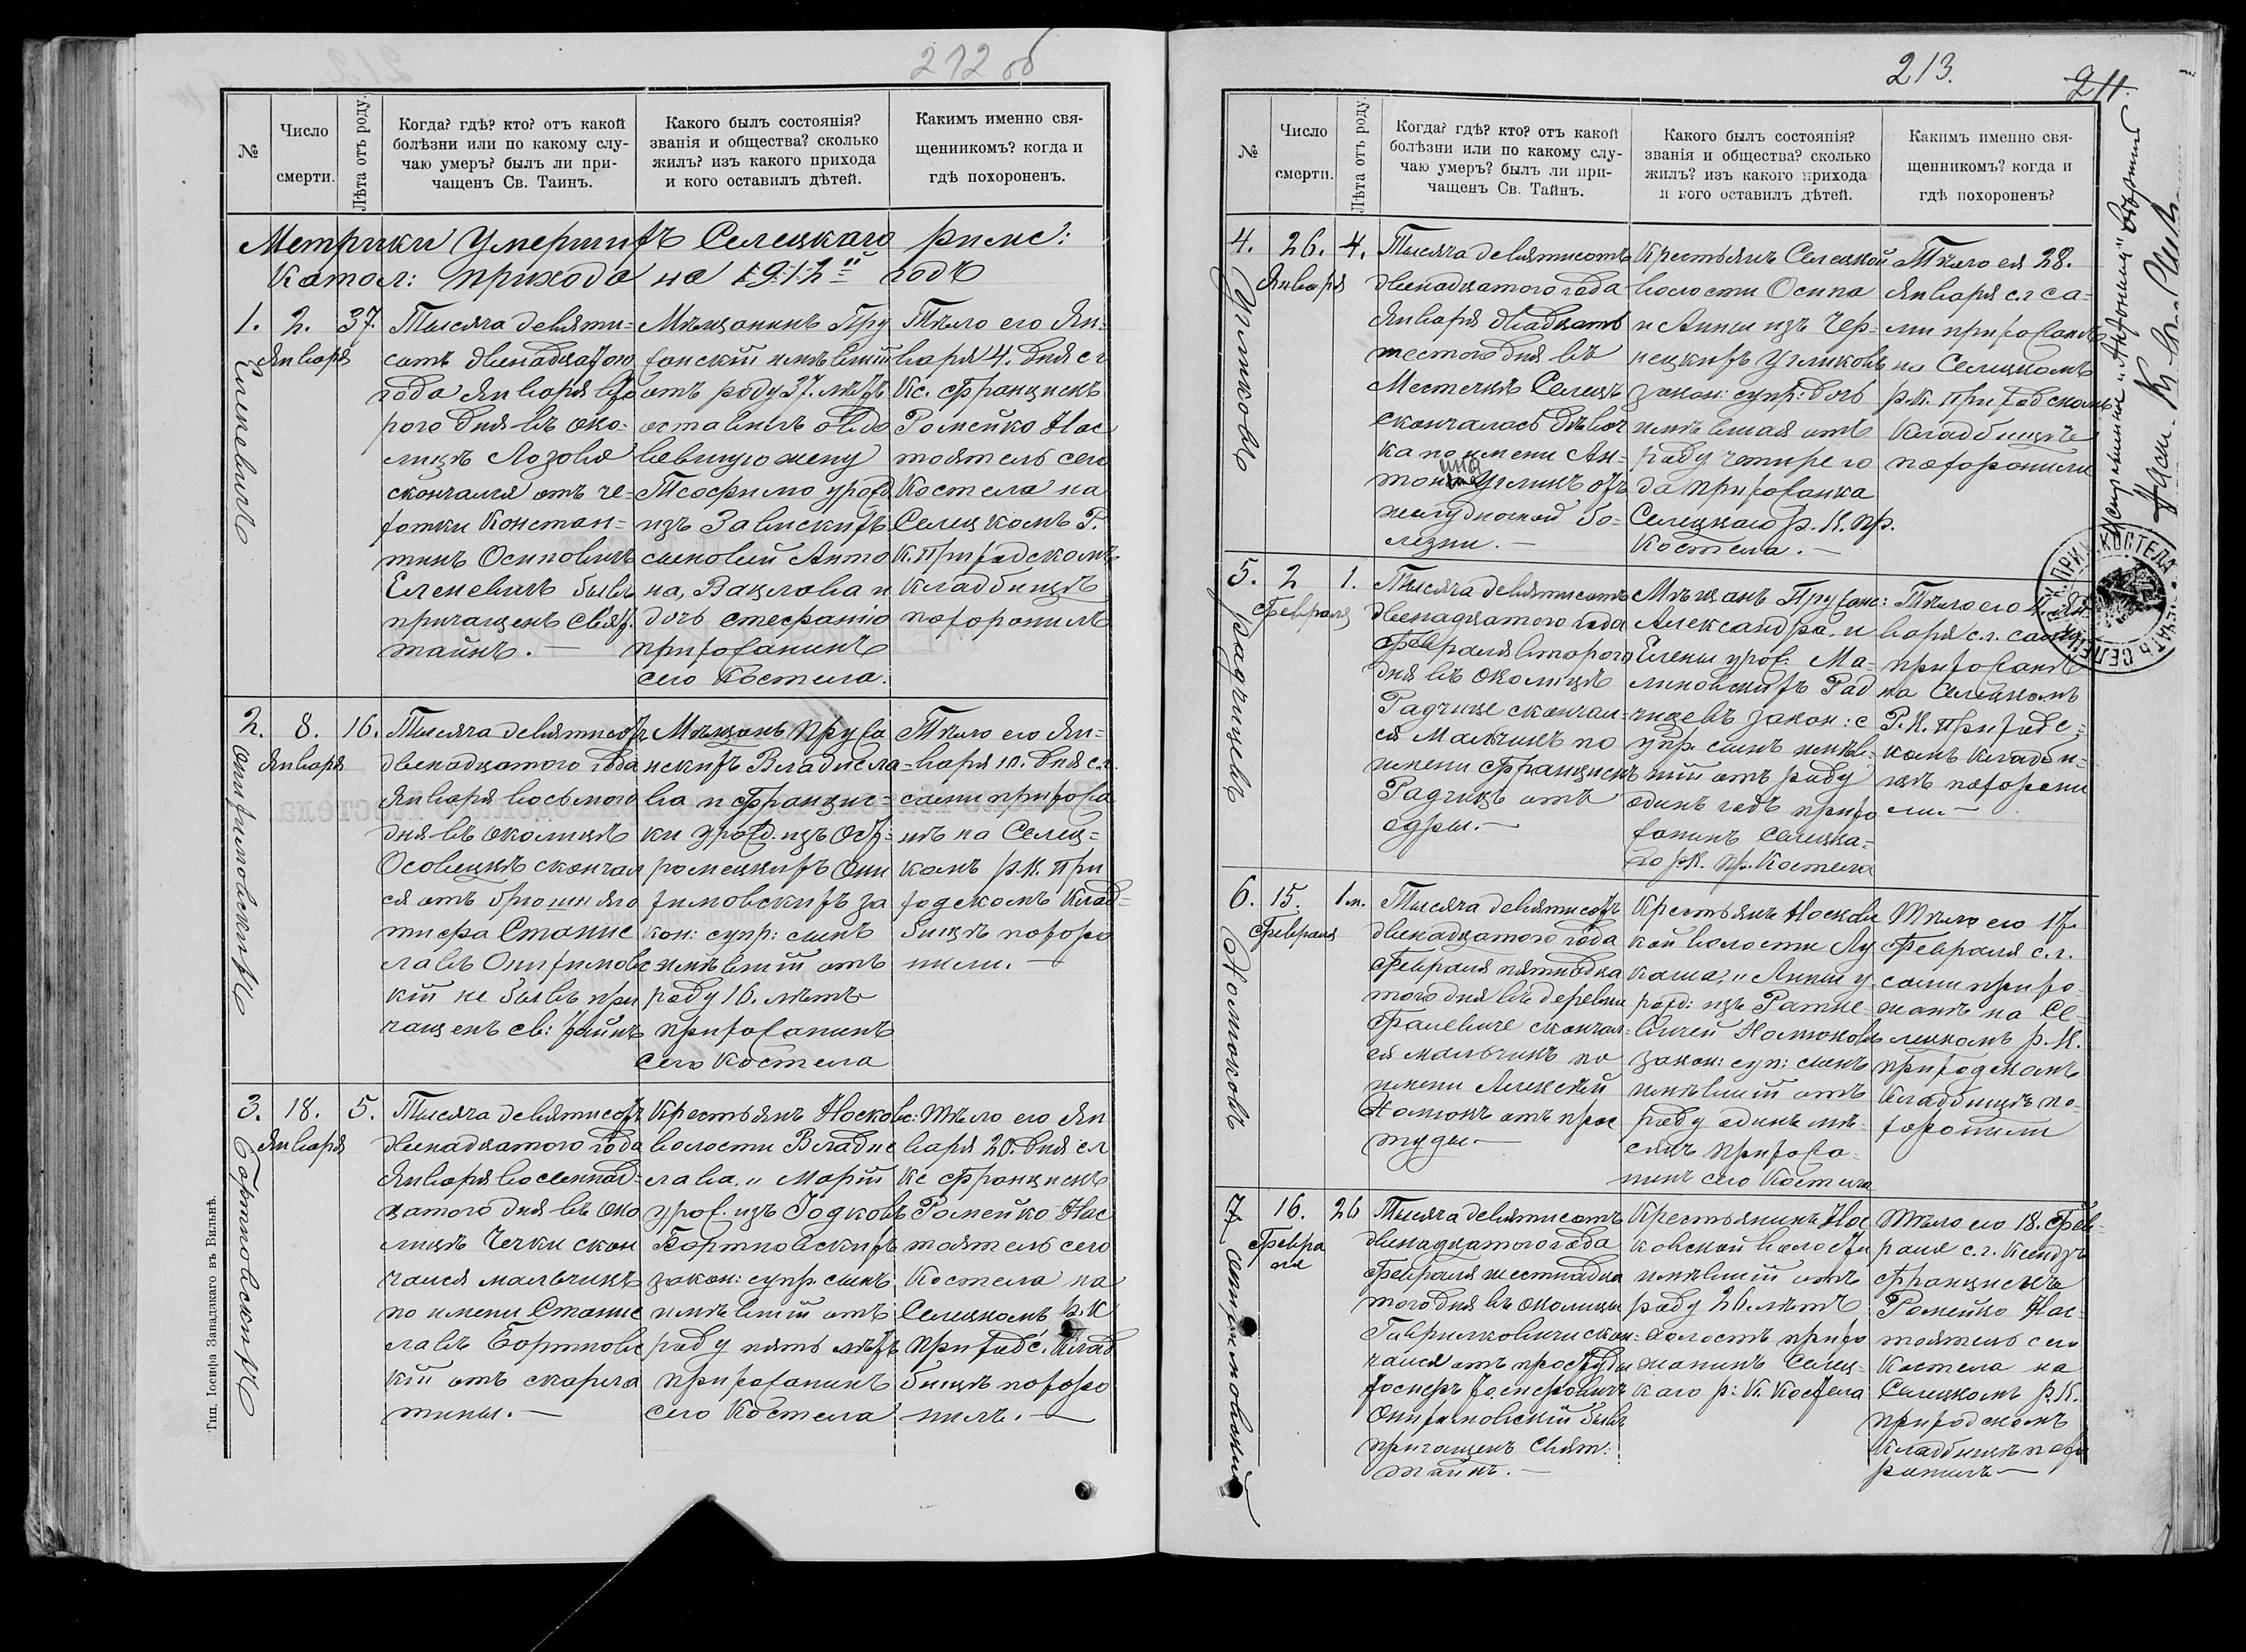 212 об
№
Число
смерти.
Лѣта отъ роду.
Когда? гдѣ? кто? отъ какой
болѣзни или по какому слу-
чаю умеръ? былъ ли при-
чащенъ Св. Таинъ.
Какого былъ состоянія?
званія и общества? сколько
жилъ? изъ какого прихода
и кого оставилъ дѣтей.
Какимъ именно свя-
щенникомъ? когда и
гдѣ похороненъ.
Метрики Умершихъ Селецкаго римс:
Катол: прихода на 1912 годъ
1.
2.
Января
37.
Тысяча девяти=
сотъ двенадцатого
года Января вто
рого дня въ око=
лицѣ Лозовія
скончался отъ че=
хотки Констан=
тинъ Осиповичъ
Еленевичъ бывъ
причащенъ Свят.
тайнъ.—
Мѣщанинъ Пру
жанскій имѣвшій
отъ роду 37. лѣтъ
оставилъ овдо
вевшую жену
Теофилю урожд
изъ
сыновей Анто
на, Вацлова и
дочь Стефанію
прихожанинъ
сего Костела.
Тѣло его Ян=
варя 4. дня с г
Кс. Францискъ
Ромейко Нас
тоятель сего
Костела на
Селецкомъ Р.
К. Приходскомъ
Кладбищѣ
похоронилъ
2.
8.
Января
16.
Тысяча девятисотъ
двенадцатого года
Января восьмого
дня въ околицѣ
Осовецкѣ скончал
ся отъ брюшняго
тифа Станис
лавъ Онихимовс
кій не бывъ при
чащенъ св: тайнъ
Мѣщанъ Пружа
нскихъ Владисла=
ва и Францис=
ки урожд. изъ Ост=
ромецкихъ Они
химовскихъ за
кон: супр: сынъ
имѣвшій отъ
роду 16. лѣтъ
прихожанинъ
сего Костела
Тѣло его Ян=
варя 10. дня с.г.
сами прихожа
нѣ на Селец=
комъ р.К. При
ходскомъ Клад=
бищѣ похоро
нили.—
Онихимовскихъ
3.
18.
Января
5.
Тысяча девятисотъ
двенадцатого года
Января восемнад=
цатого дня въ око
лицѣ Чечки скон
чался мальчикъ
по имени Станис
лавъ Бортновс
кій отъ скарла
тины.—
Крестьянъ Носковс:
волости Владис
лава, и Маріи
урож. изъ Годковъ
Бортновскихъ
закон: супр. сынъ
имѣвшій отъ
роду пять лѣтъ
прихожанинъ
сего Костела
Тѣло его Ян
варя 20. дня с.г
Кс Францискъ
Ромейко Нас
тоятель сего
Костела на
Селецкомъ р.К
приходс. Клад
бищѣ похоро
нилъ.—
Бортновскихъ
Тип. Іосифа Завадзкаго въ Вильнѣ.
213.
211.
№
Число
смерти.
Лѣта отъ роду.
Когда? гдѣ? кто? отъ какой
болѣзни или по какому слу-
чаю умеръ? былъ ли при-
чащенъ Св. Тайнъ.
Какого былъ состоянія?
званія и общества? сколько
жилъ? изъ какого прихода
и кого оставилъ дѣтей.
Какимъ именно свя-
щенникомъ? когда и
гдѣ похороненъ?
4.
26.
Января
4.
Тысяча девятисотъ
двенадцатого года
Января двадцать
шестого дня въ
Местечкѣ Селецъ
скончалась дѣвоч
ка по имени Ан=
тонина Угликъ отъ
желудочной бо=
лезни.—
Крестьянъ Селецкой
волости Осипа
и Анны изъ Чер=
нецкихъ Угликовъ
закон: супр: дочь
имѣвшая отъ
роду четыре го
да прихожанка
Селецкаго р. К. пр.
Костела.—
Тѣло ея 28.
Января с.г са=
ми прихожанѣ
на Селецкомъ
р.К. Приходскомъ
Кладбищѣ
похоронили
Угликовъ
5.
2
Февраля
1.
Тысяча девятисотъ
двенадцатого года
Февраля второго
дня въ околицѣ
Радчицк скончал=
ся Мальчикъ по
имени Францискъ
Радчицъ отъ
одры.—
Мѣщанъ Пружанс:
Александра, и
Елены урож. Ма=
линовскихъ Рад
чицевъ закон: с
упр. сынъ имѣв=
шій отъ роду
одинъ годъ прихо
жанинъ Селецка=
го р.К. пр. Костела
Тѣло его 4. Ян
варя с.г. сами
прихожанѣ
на Селецкомъ
Р. К. Приходс=
комъ Кладби=
щѣ похорони
ли.—
Радчицевъ
6.
15.
Февраля
1 м.
Тысяча девятисотъ
двенадцатого года
Февраля пятнадца
того дня въ деревни
скончал=
ся мальчикъ по
имени Алексѣй
Холмокъ отъ прос
туды.—
Крестьянъ Носковс
кой волости Лу
каша, и Анны у
рожд: изъ Ратке=
вичей Холмоковъ
закон: суп: сынъ
имѣвшій отъ
роду одинъ мѣ=
сяцъ прихожа=
нинъ сего Костела
Тѣло его 17.
Февраля с.г.
сами прихо=
жанѣ на Се=
лецкомъ р. К.
приходскомъ
Кладбищѣ по=
хоронили
Холмоковъ
7.
16.
Февра
ля
26
Тысяча девятисотъ
двенадцатого года
Февраля шестнадца
того дня въ околицы
Гаврилковичи скон=
чался отъ простуды
Іосифъ Іосифовичъ
Онихимовскій бывъ
причащенъ Свят.
тайнъ.—
Крестьянинъ Нос
ковской волости
имѣвшій отъ
роду 26 лѣтъ
холостъ прихо
жанинъ Селец=
каго р: К. Костела
Тѣло его 18. Фев=
раля с.г. Ксендзъ
Францискъ
Ромейко Нас=
тоятель сего
Костела на
Селецкомъ р.К.
приходскомъ
Кладбищѣ похо
ронилъ—
Онихимовскій